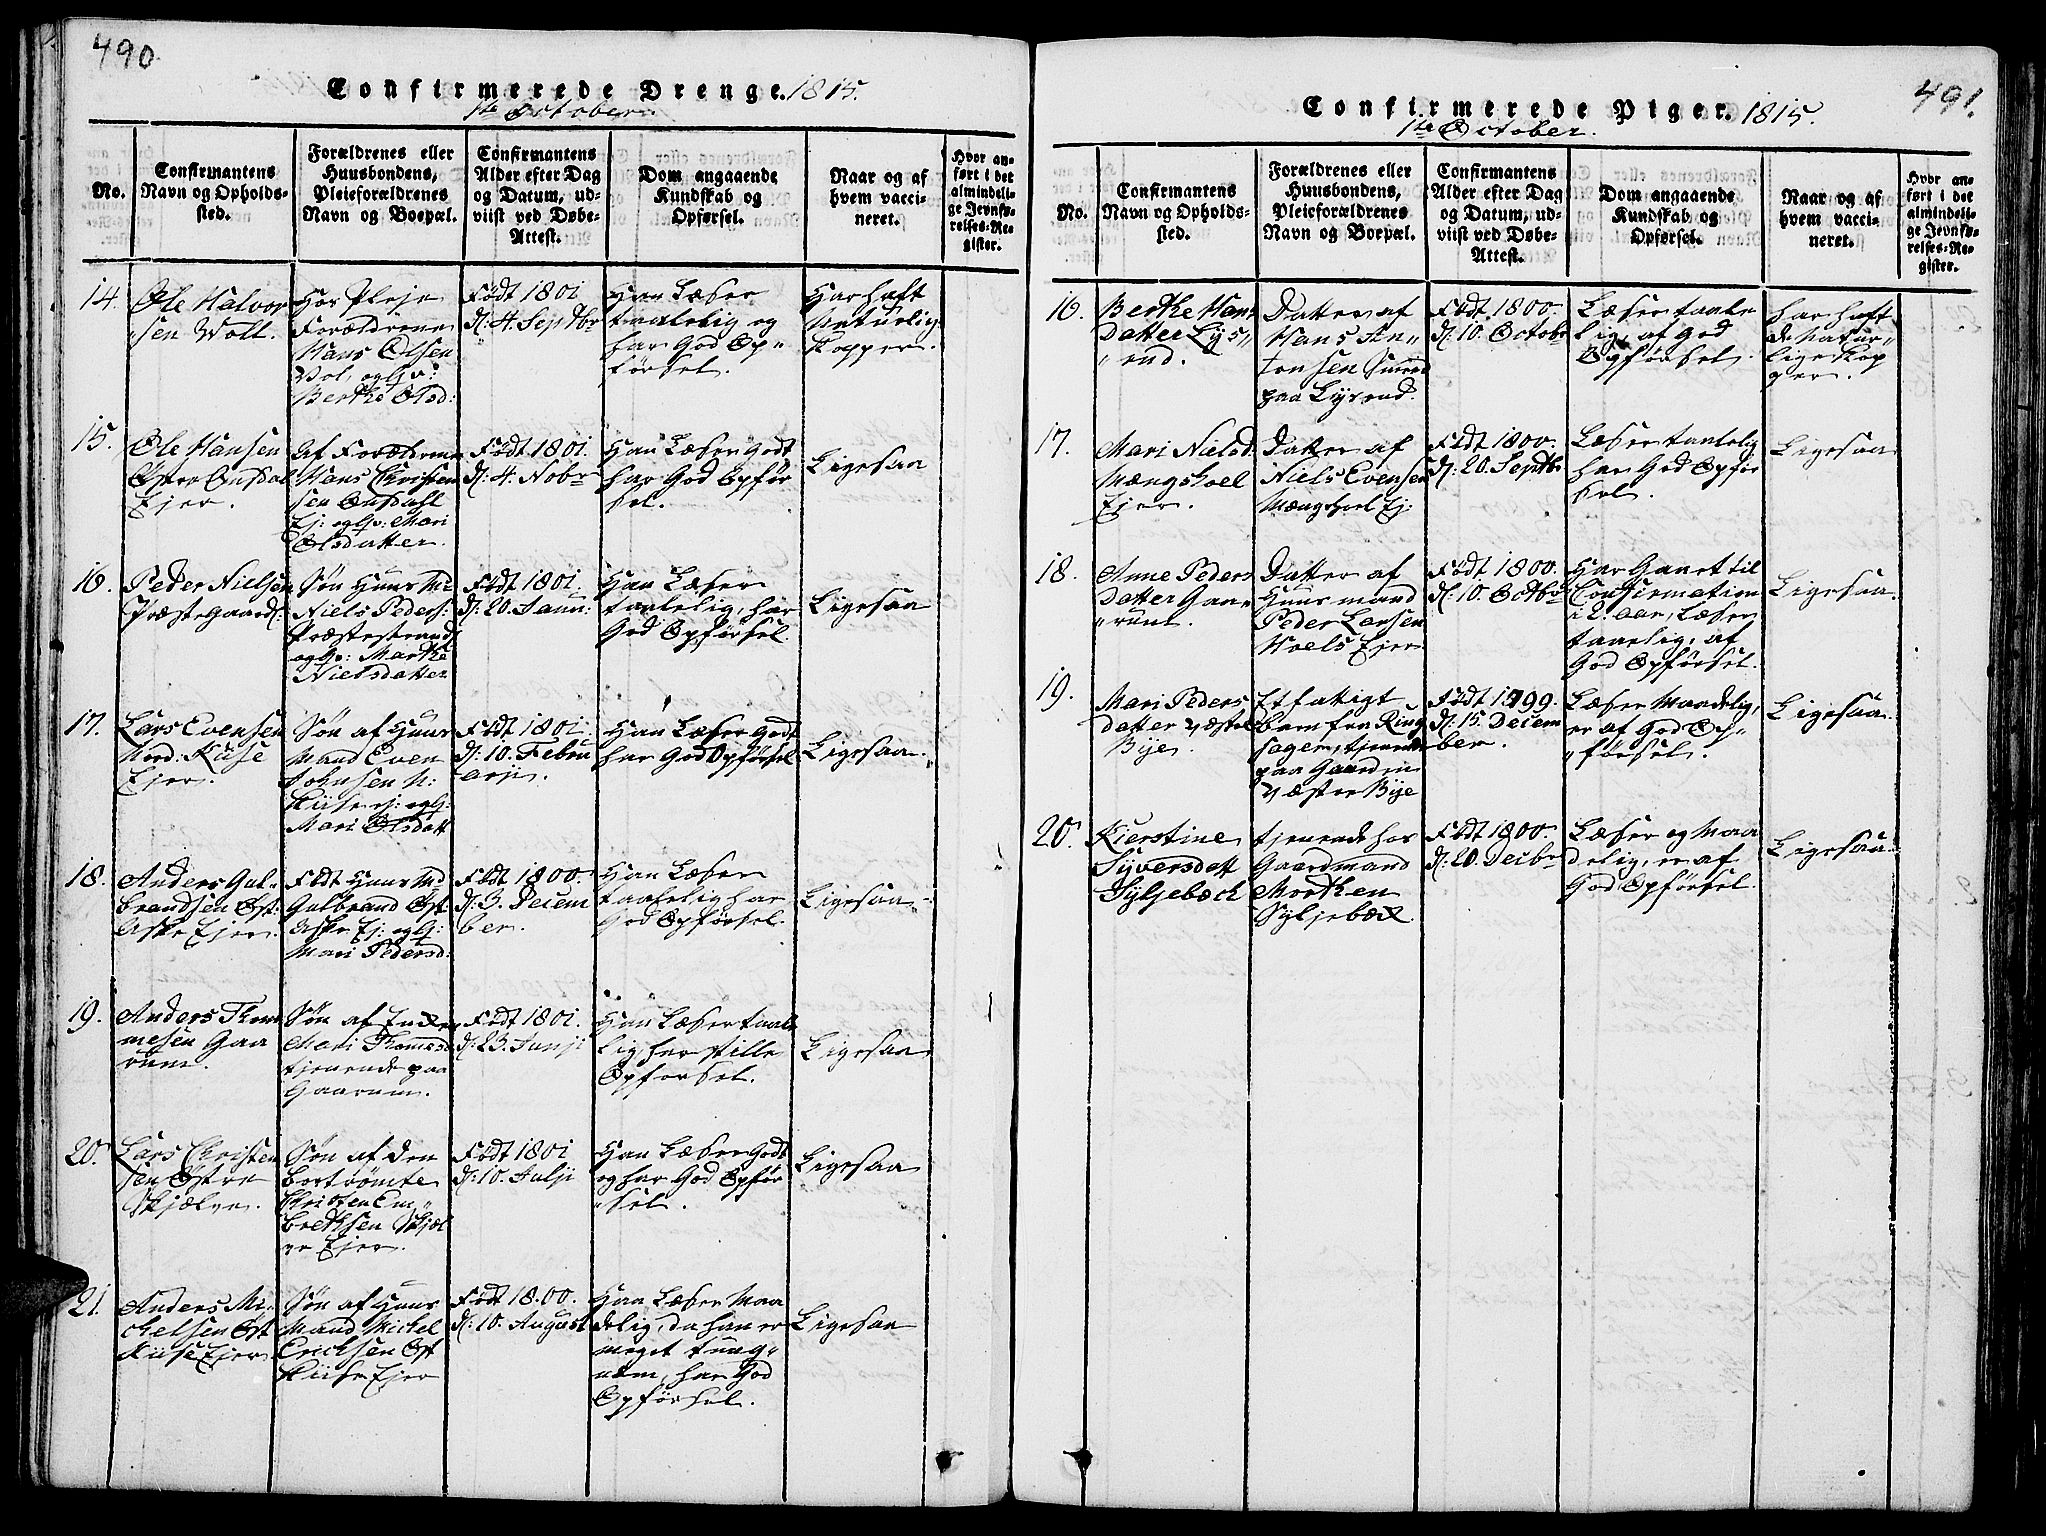 490.
Confirmerede Drenge. 1815.
1ste October
No.
Confirmantens
Navn og Opholds-
sted.
Forældrenes eller
Huusbondens,
Pleieforældrenes
Navn og Boepæl.
Confirmantens
Alder efter Dag
og Datum, ud-
viist ved Døbe-
Attest.
Dom angaaende
Kundskab og
Opførsel.
Naar og af
hvem vacci-
neret.
Hvor an-
ført i det
almindeli-
ge Jevnfø-
relses-Re-
gister.
14.
Ole Halvor
sen Woll.
Hos Pleje
Forældrene
Hans Olsen
Vol, og Gv:
Berthe Olsd:
Født 1801
d: 4. Septbr
Han Læser
taalelig og
har God Op„
førsel.
Har haft
Naturlig
Kopper.
15.
Ole Hansen
Østre Onsdal
Ejer.
Af Forældrene
Hans Christen
sen Onsdahl
Ej: og Gv: Mari
Olsdatter.
Født 1801.
d: 4. Nobr
Han Læser Godt
har God Opfør
sel.
Ligesaa
16.
Peder Nielsen
Præstegaards:
Søn Huus M:
Niels Peders:
Præstestrand
og Gv: Marthe
Nielsdatter
Født 1801.
d: 20. Jann:
Han Læser
taalelig, har
God Opførsel.
Ligesaa
17.
Lars Evensen
Nord: Kiise
Ejer.
Søn af Huus
Mand Even
Johnsen N:
Kiise ej: og G:
Mari Olsdatt
Født 1801.
d: 10. Febru
arji
Han Læser Godt
har God Opførsel
Ligesaa.
18.
Anders Gul-
brandsen Øst:
Aske Ejer.
Født Huus Md
Gulbrand Øst
Aske Ej: og G:
Mari Pedersd:
Født 1800.
d: 3. Decem
ber.
Han Læser
taalelig har
God Opførsel.
Ligesaa
19.
Anders Thom
mesen Gaa
rum.
Søn af Enken
Mari Thomesd
tjenende paa
Gaarum.
Født 1801.
d: 23. Junji
Han Læser taale
lig har stille
Opførsel.
Ligesaa
20.
Lars Christen
sen Østre
Skjælve.
Søn af den
bortrømte
Christen Em„
brethsen Skjæl
ve Ejer.
Født 1801
d: 10. Julji
Han Læser Godt
og har God Opfør
„sel.
Ligesaa
21.
Anders Mi-
chelsen Øst
Kiise Ejer
Søn af Huus
Mand Michel
Erichsen Øst
Kiise Ejer
Født 1800.
d: 10. August
Han Læser Maa
delig, da han er
meget tung„
nem, har God
Opførsel.
Ligesaa
491.
Confirmerede Piger. 1815.
1ste October.
No.
Confirmantens
Navn og Opholds-
sted.
Forældrenes eller
Huusbondens,
Pleieforældrenes
Navn og Boepæl.
Confirmantens
Alder efter Dag
og Datum, ud-
viist ved Døbe-
Attest.
Dom angaaende
Kundskab og
Opførsel.
Naar og af
hvem vacci-
neret.
Hvor an-
ført i det
almindeli-
ge Jevnfø-
relses-Re-
gister.
16.
Berthe Hans
Datter Lys„
„rud.
Datter af
Hans An„
tonsen
paa Lysrud.
Født 1800.
d: 10. Octobr
Læser taale
lig, af God
Opførsel.
har haft
de Natur„
lige Kop
per.
17.
Mari Nielsd
Mængshoel
Ejer.
Datter af
Niels Evensen
Mængshoel Ej:
Født 1800.
d: 20. Septbr
Læser taalelig
har God Opfør
sel.
Ligesaa
18.
Anne Peders
Datter Gaa„
„rum.
Datter af
Huusmand
Peder Larsen
Hoels Ejer
Født 1800.
d: 10. Octbr
Har Ganet til
Confirmation
i 2. aar, Læser
taaelig, af
God Opførsel.
Ligesaa.
19.
Mari Peders
datter Væstre
Bye.
Et fattigt
barn fra Ring
sager, tjenende
paa Gaarden
Væstre Bye
Født 1799.
d: 15. Decem
ber.
Læser Maadelig,
er af God Op„
„førsel.
Ligesaa.
20.
Kierstine
Syversdatt
Syljebæch
tjenende hos
Gaardmand
Morthen
Syljebæk
Født 1800.
d: 20. Decbr
Læser og Maa
delig, er af
God Opførsel.
Ligesaa.